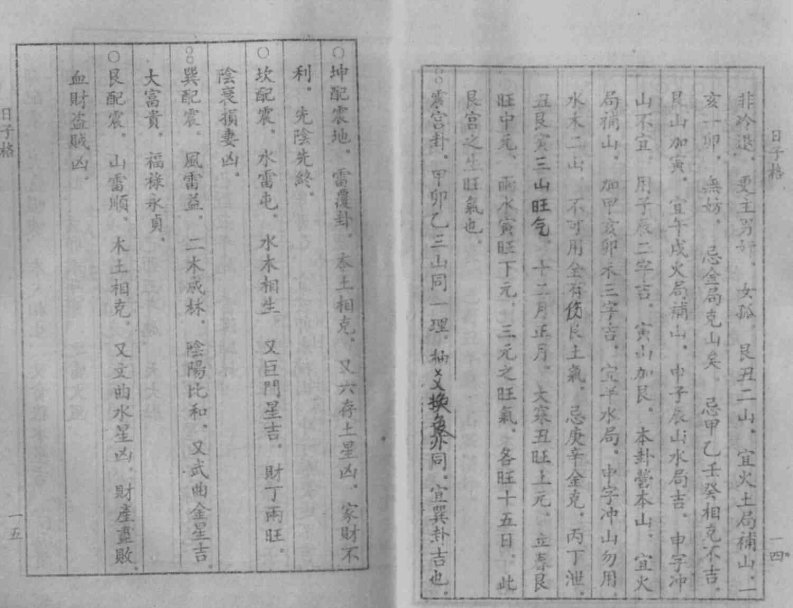 日子格
非冷退。更主男 女孤 艮丑二山。宜火土局補山。一
亥一卯。無妨。忌金局克山矣。忌甲乙壬癸相克不吉。
艮山加寅。宜午戌火局補山。申子辰山水局吉。申字冲
山不宜。用子辰二字吉。寅山加艮。本卦營本山。宜火
局補山。加甲亥卯未三字吉。宜 水局。申字冲山勿用
水木二山 不可用全有伤艮土氣。忌庚辛金克。丙丁泄。
丑艮寅三山旺气。十二月正月。大寒丑旺上元。立春艮
旺中元。雨水寅旺下元。三元之旺氣。各旺十五日。此
艮宫之生旺氣也。
○震宫卦。甲卯乙三山同一理。抽爻換象亦同。宜巽卦吉也。
一四
○坤配震地。雷覆卦。木土相克。又六存土星凶。家財不
利。先陰先終。
○坎配震。水雷屯。水木相生。又巨門星吉。財丁兩旺。
陰衰損妻凶。
○巽配震。風雷益。二木成林。陰陽比和。又武曲金星吉
大富貴。福祿永貞。
○艮配震。山雷順。木土相克。又文曲水星凶。財產盡敗
血財盜賊凶。
日子格
一五